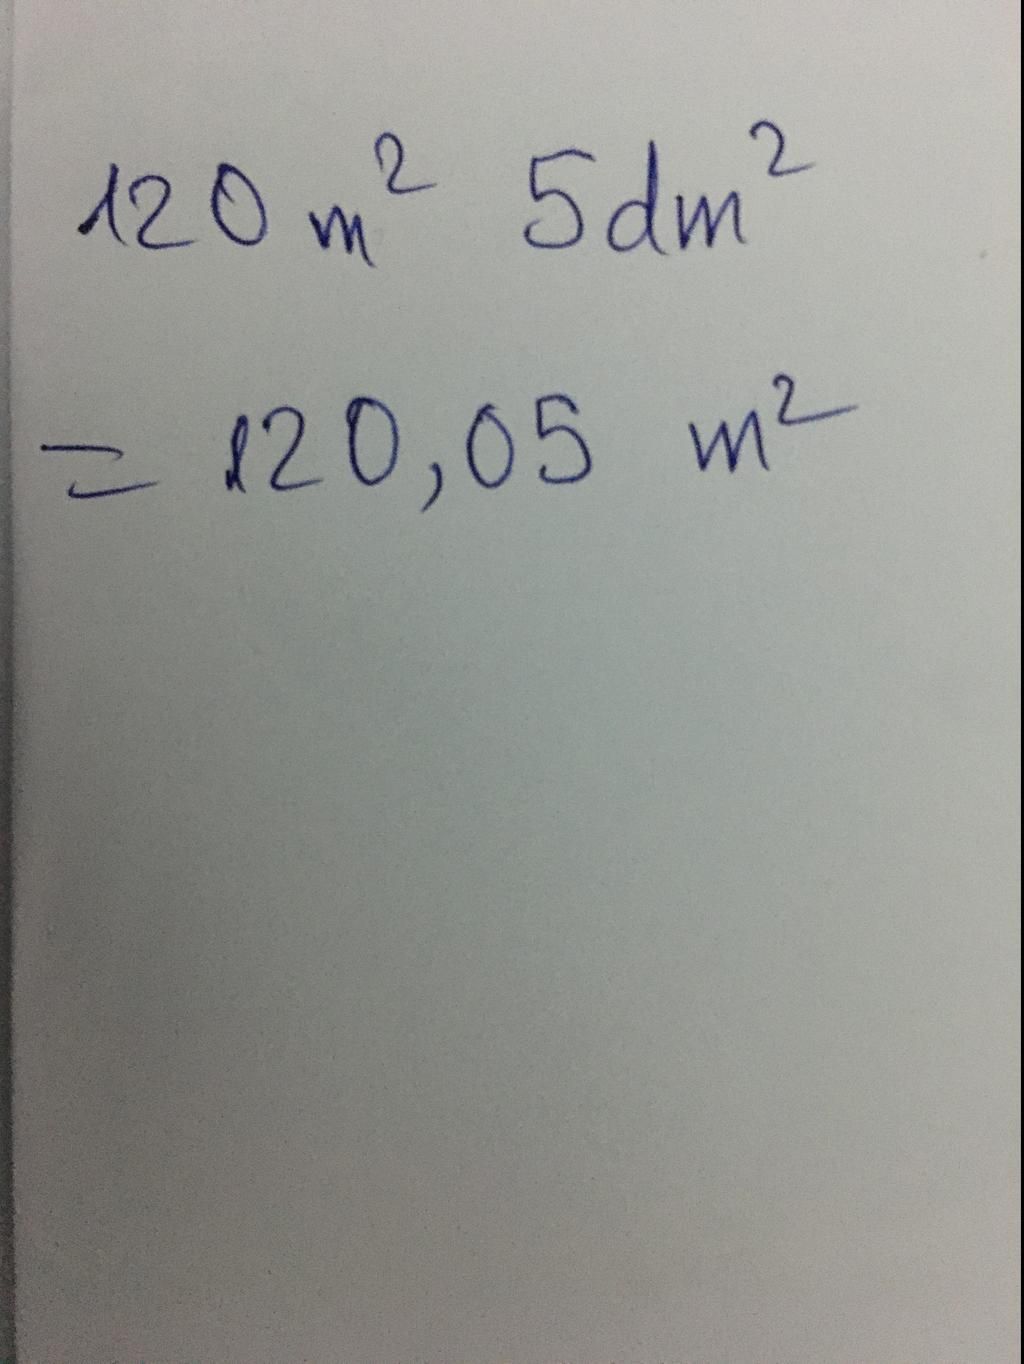 120 m² 5dm²
= 120,05 m²